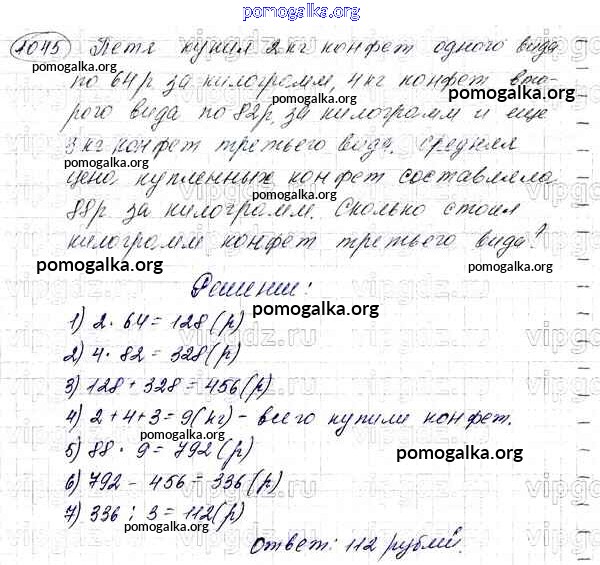 pomogalka.org
1045 Петя купил 2 кг конфет одного вида
pomogalka.org
по 64 р за килограмм, 4 кг конфет вто-
pomogalka.org
рого вида по 82 р. за килограмм и еще
pomogalka.org
3 кг конфет третьего вида. Средняя
pomogalka.org
цена купленных конфет составляла
pomogalka.org
88 р за килограмм. Сколько стоил
килограмм конфет третьего вида?
pomogalka.org
pomogalka.org
Решение:
pomogalka.org
1) 2 · 64 = 128 (р)
vipgdz.ru
2) 4 · 82 = 328 (р)
pomogalka.org
3) 128 + 328 = 456 (р)
4) 2 + 4 + 3 = 9 (кг) - всего купили конфет.
pomogalka.org
5) 88 · 9 = 792 (р)
pomogalka.org
6) 792 - 456 = 336 (р)
pomogalka.org
vipgdz.ru
7) 336 : 3 = 112 (р)
pomogalka.org
Ответ: 112 рублей.